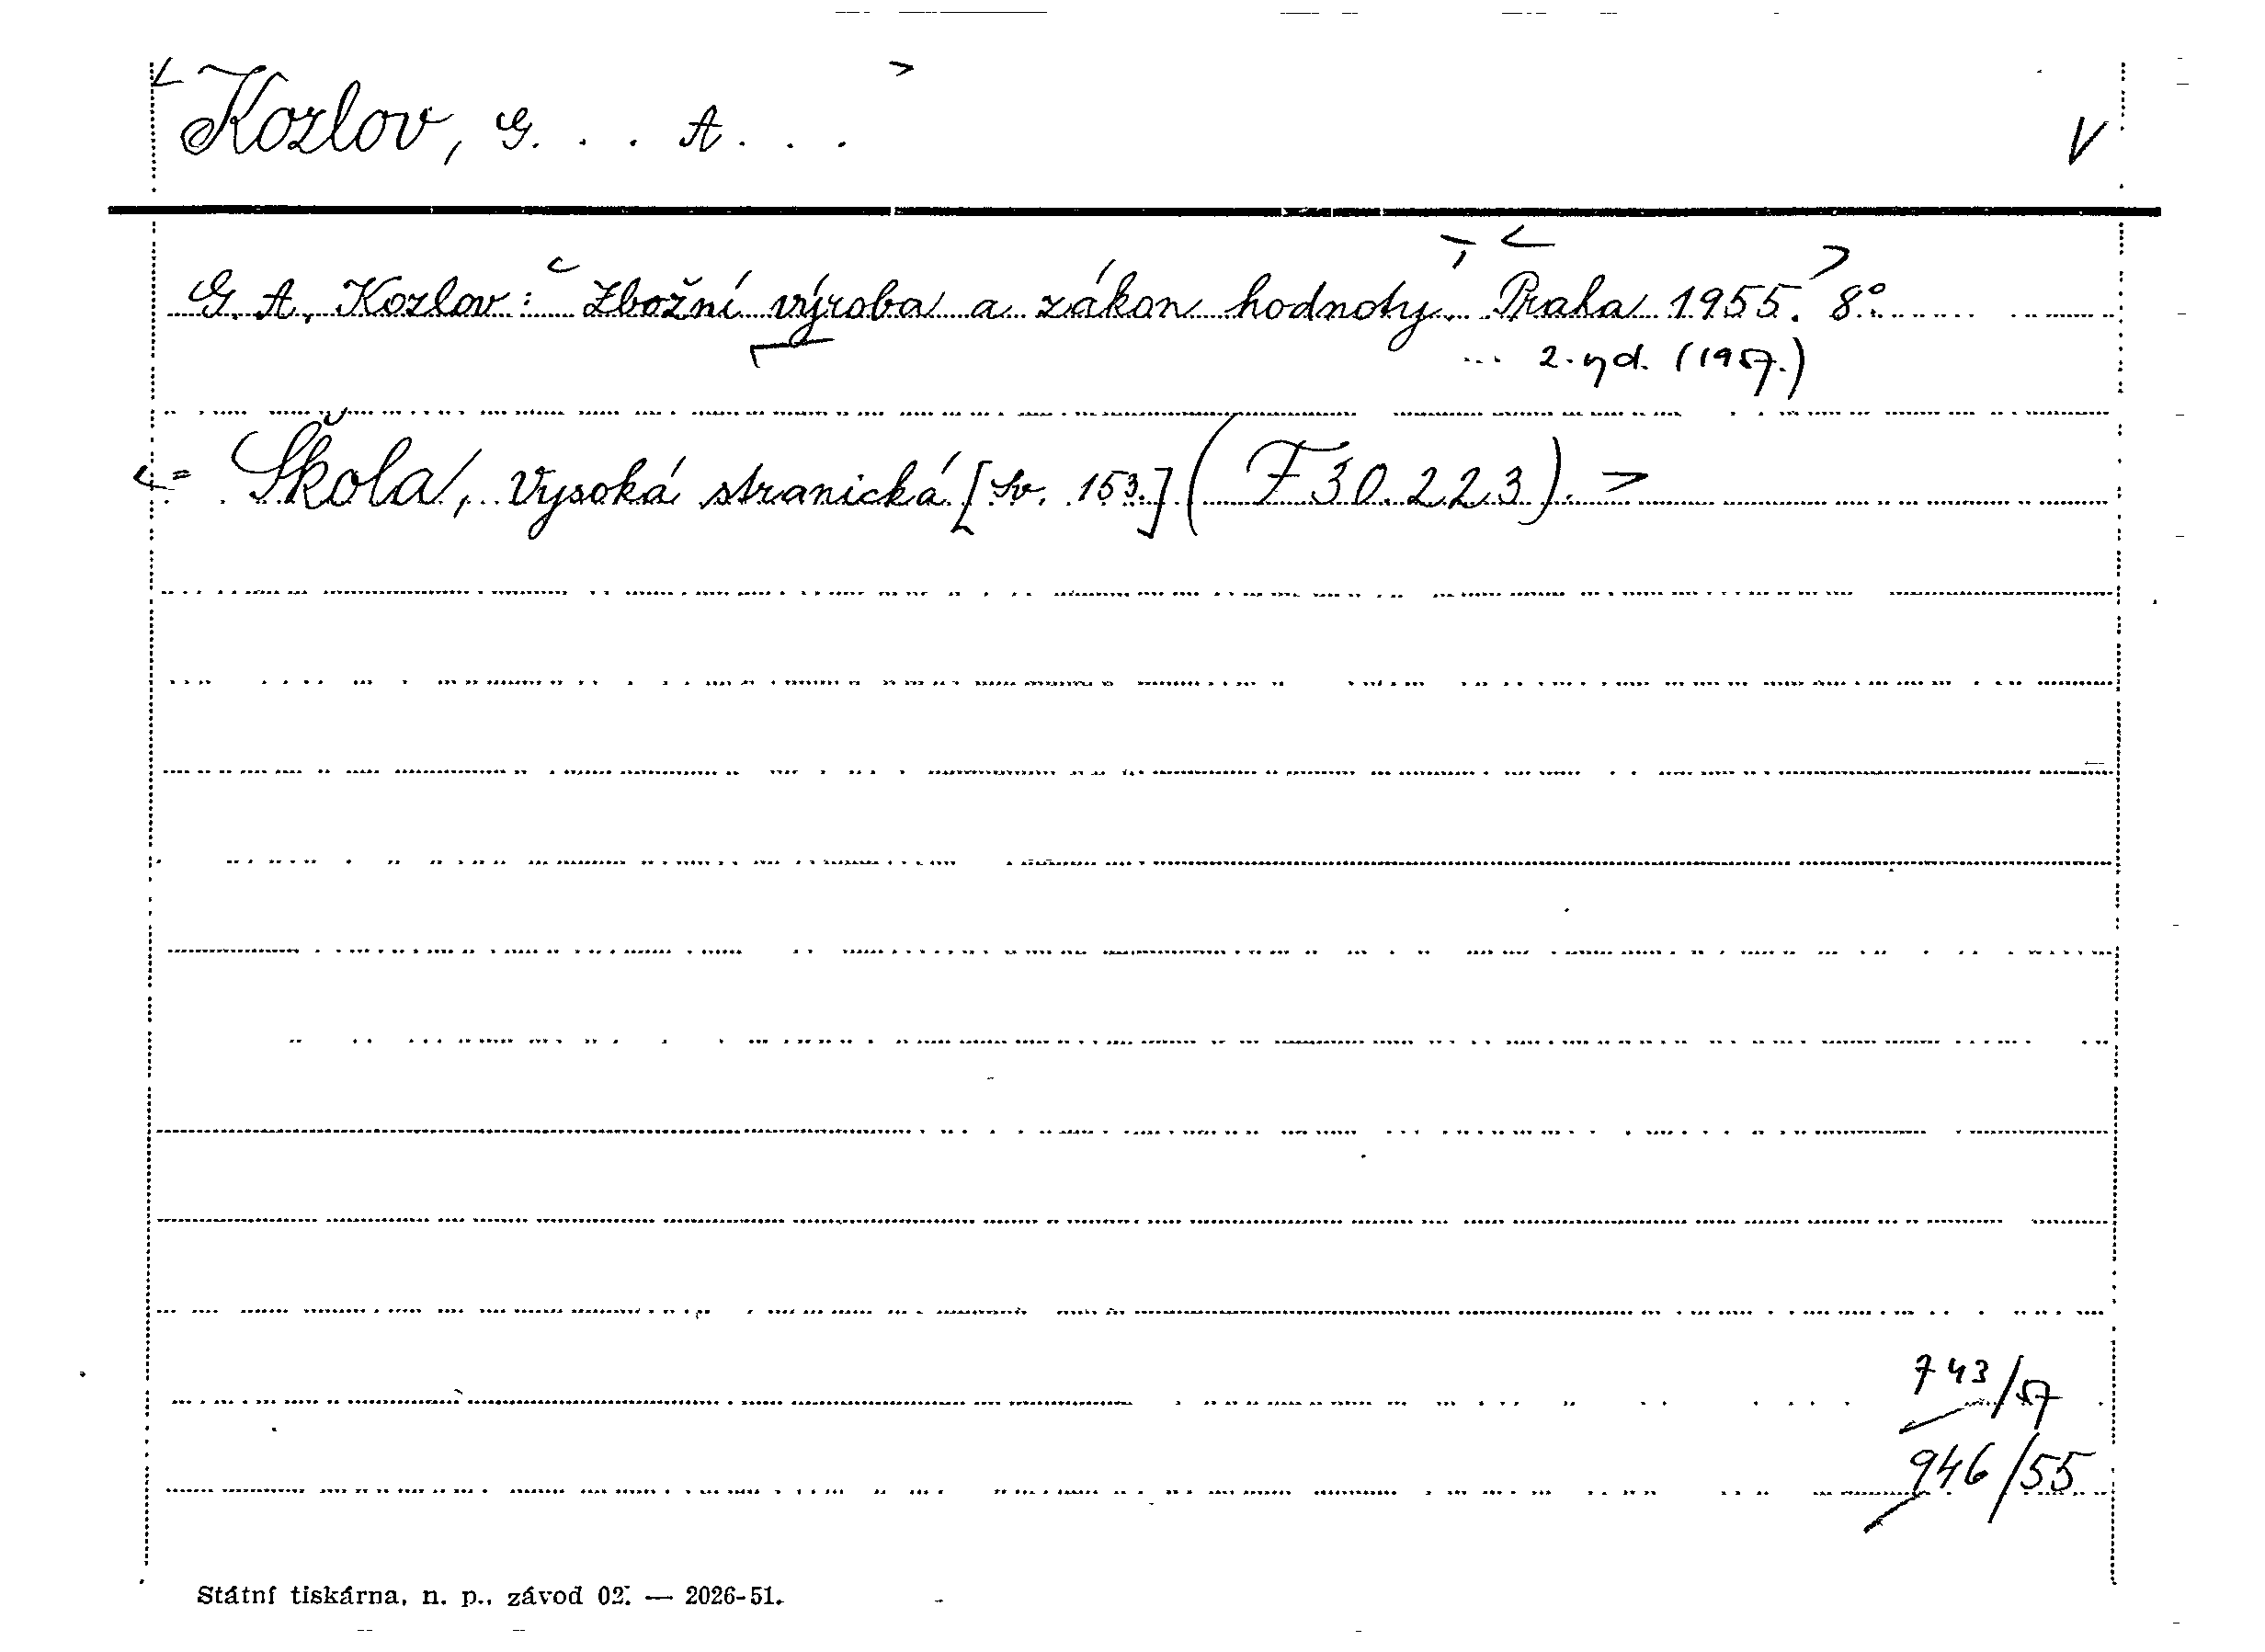 < Kozlov, G. . . A. . . >
V
G. A. Kozlov: Zbožní výroba a zákon hodnoty. Praha 1955. 8°.
... 2. vyd. (1957.)
<= Škola, Vysoká stranická [Sv. 153.] (F 30.223). >
743/57
946/55
Státní tiskárna, n. p., závod 02. — 2026-51.